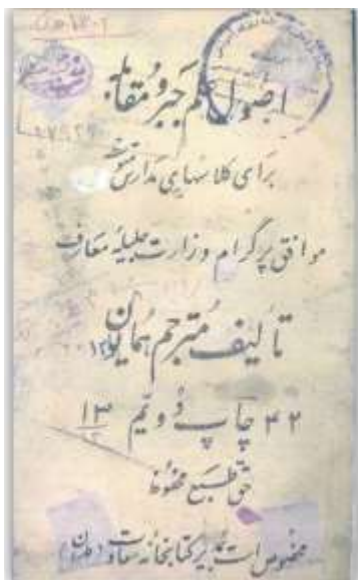 اصول علم جبر و مقابله
برای کلاسهای مدارس متوسطه
موافق پرگرام وزارت جلیلهٔ معارف
تألیف مترجم همایون
۴۲ چاپ دویّم ۱۳
حق طبع محفوظ
مخصوص است به کتابخانه سعادت (طهران)